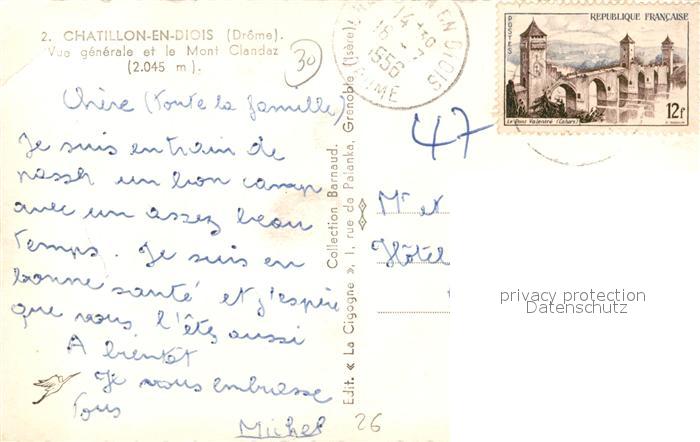 2. CHATILLON-EN-DIOIS (Drôme).
Vue générale et le Mont Glandaz
(2.045 m).
30
Chère (toute la famille)
Je suis en train de
passer un bon camp
avec un assez beau
temps. Je suis en
bonne santé et j'espère
que vous l'êtes aussi
A bientôt
Je vous embrasse
tous
Michel
26
Edit. « La Cigogne », 1, rue de Palanka, Grenoble (Isère)
Collection Barnaud.
EN DIOIS
14-30
18-7
1956
DROME
REPUBLIQUE FRANÇAISE
POSTES
Le Pont Valentré (Cahors)
12F
47
Mr et
Hôtel
privacy protection
Datenschutz